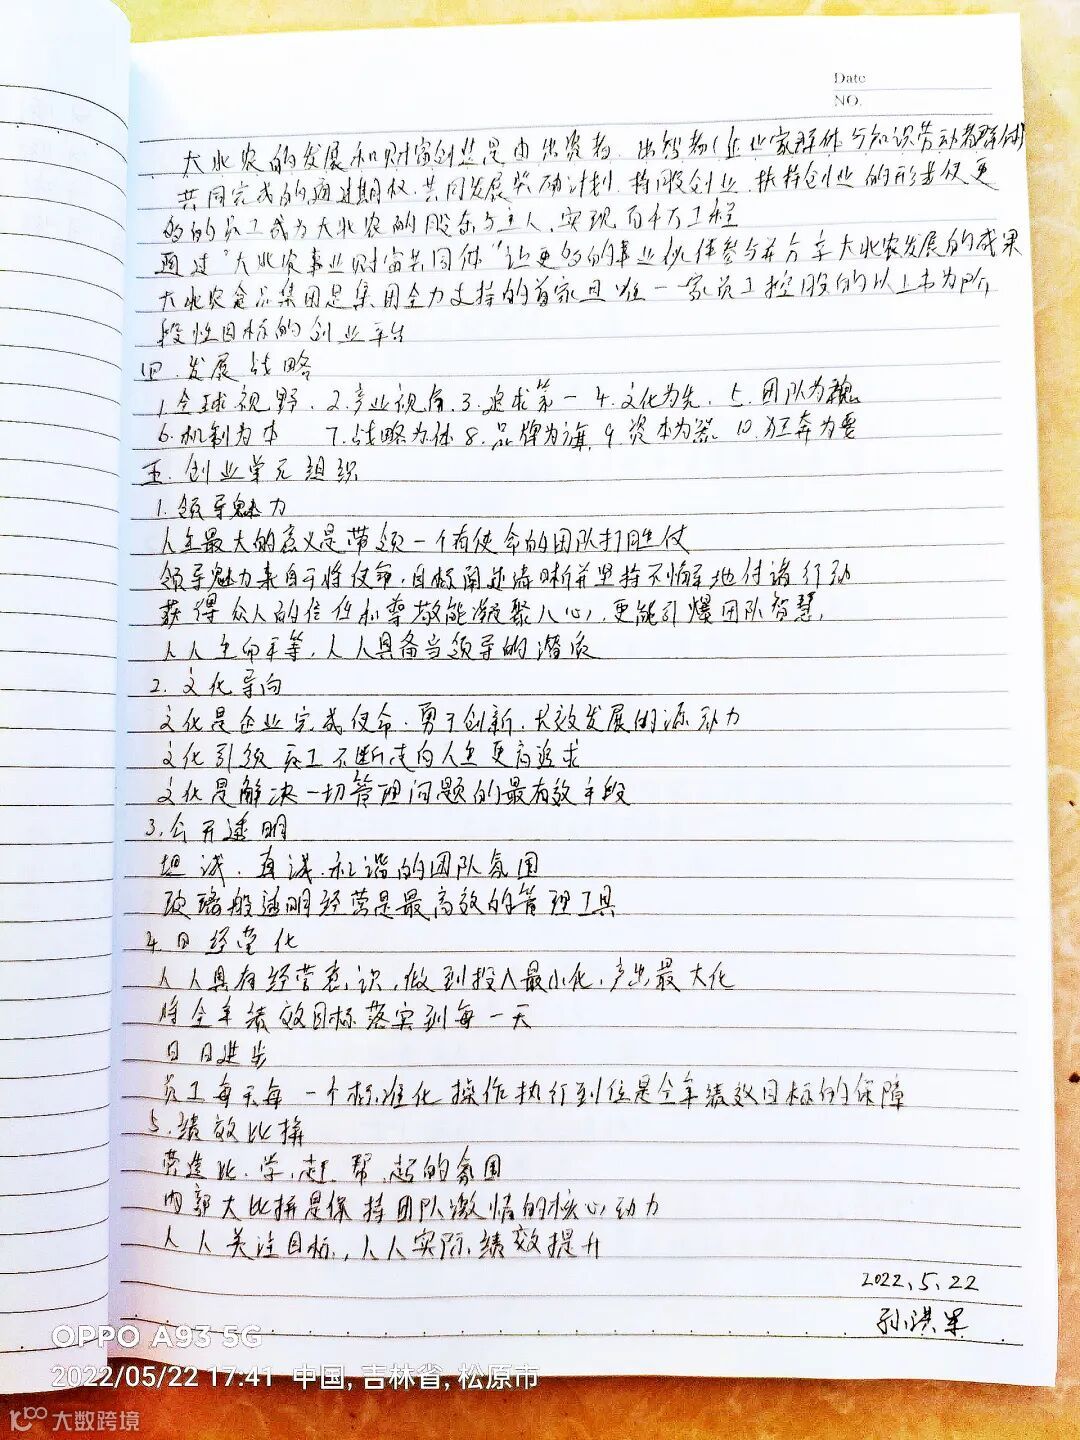 Date
NO.
大北农的发展和财富创造是由出资者、出智者(企业家群体与知识劳动者群体)
共同完成的通过期权、共同发展奖励计划、持股创业、扶持创业的形式使更
多的员工成为大北农的股东与主人,实现百千万工程
通过“大北农事业财富共同体”让更多的事业伙伴参与并分享大北农发展的成果
大北农食品集团是集团全力支持的首家且唯一一家员工控股的以上市为阶
段性目标的创业平台
四、发展战略
1、全球视野、2、产业视角、3、追求第一 4、文化为先、5、团队为魂
6、机制为本 7、战略为体 8、品牌为旗、9、资本为器、10、狂奔为要
五、创业单元组织
1、领导魅力
人生最大的意义是带领一个有使命的团队打胜仗
领导魅力来自于将使命、目标阐述清晰并坚持不懈地付诸行动
获得众人的信任和尊敬能凝聚人心,更能引爆团队智慧,
人人生命平等,人人具备当领导的潜质
2、文化导向
文化是企业完成使命、勇于创新、长效发展的源动力
文化引领员工不断走向人生更高追求
文化是解决一切管理问题的最有效手段
3、公开透明
坦诚、真诚、和谐的团队氛围
玻璃般透明经营是最高效的管理工具
4、日经营化
人人具有经营意识,做到投入最小化、产出最大化
将全年绩效目标落实到每一天
日日进步
员工每天每一个标准化操作执行到位是全年绩效目标的保障
5、绩效比拼
营造比、学、赶、帮、超的氛围
内部大比拼是保持团队激情的核心动力
人人关注目标,人人实际绩效提升
2022、5、22
孙洪军
OPPO A93 5G
2022/05/22 17:41 中国, 吉林省, 松原市
大数跨境